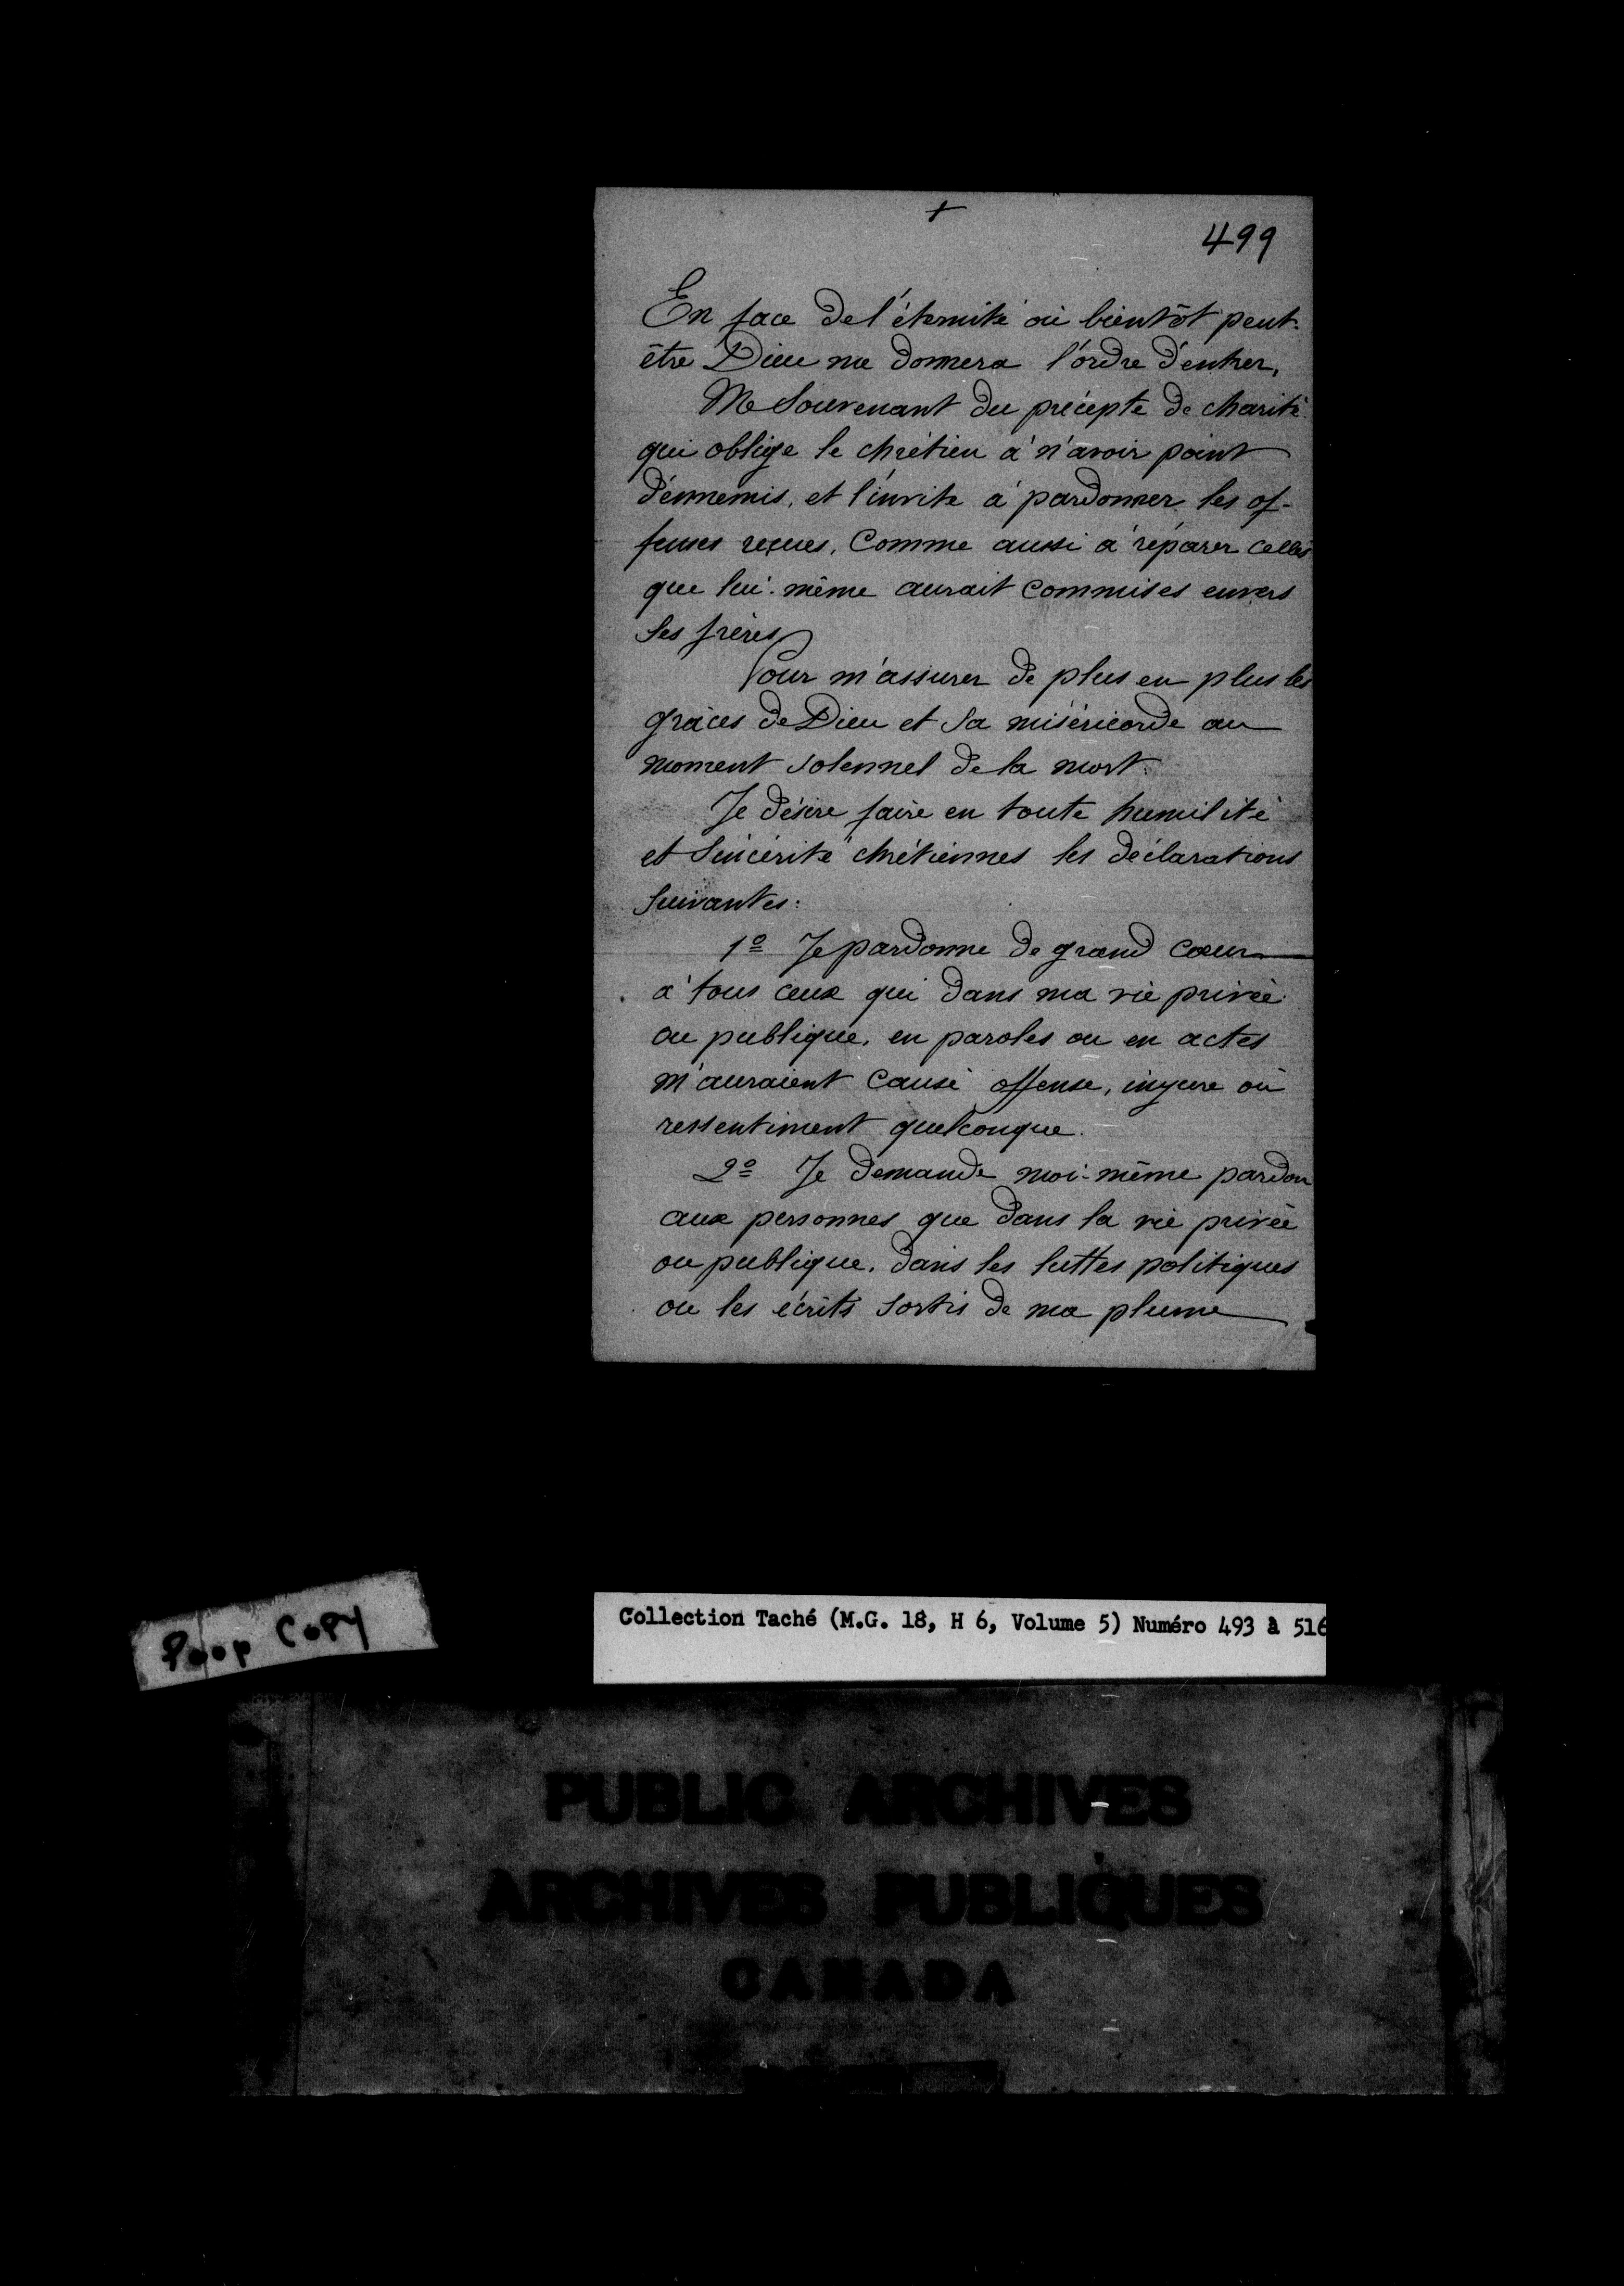 +
499
En face de l'éternité où bientôt peut-
être Dieu me donnera l'ordre d'entrer,
Me Souvenant du précepte de charité
qui oblige le chrétien à n'avoir point
d'ennemis, et l'invite à pardonner les of-
fenses reçues, Comme aussi à réparer celles
que lui-même aurait commises envers
ses frères
Pour m'assurer de plus en plus les
grâces de Dieu et sa miséricorde au
moment solennel de la mort.
Je désire faire en toute humilité
et sincérité chrétiennes les déclarations
suivantes:
1º Je pardonne de grand coeur
à tous ceux qui dans ma vie privée
ou publique, en paroles ou en actes
m'auraient causé offense, injure ou
ressentiment quelconque.
2º Je demande moi-même pardon
aux personnes que dans la vie privée
ou publique, dans les luttes politiques
ou les écrits sortis de ma plume
Poop COPY
Collection Taché (M.G. 18, H 6, Volume 5) Numéro 493 à 516
PUBLIC ARCHIVES
ARCHIVES PUBLIQUES
CANADA